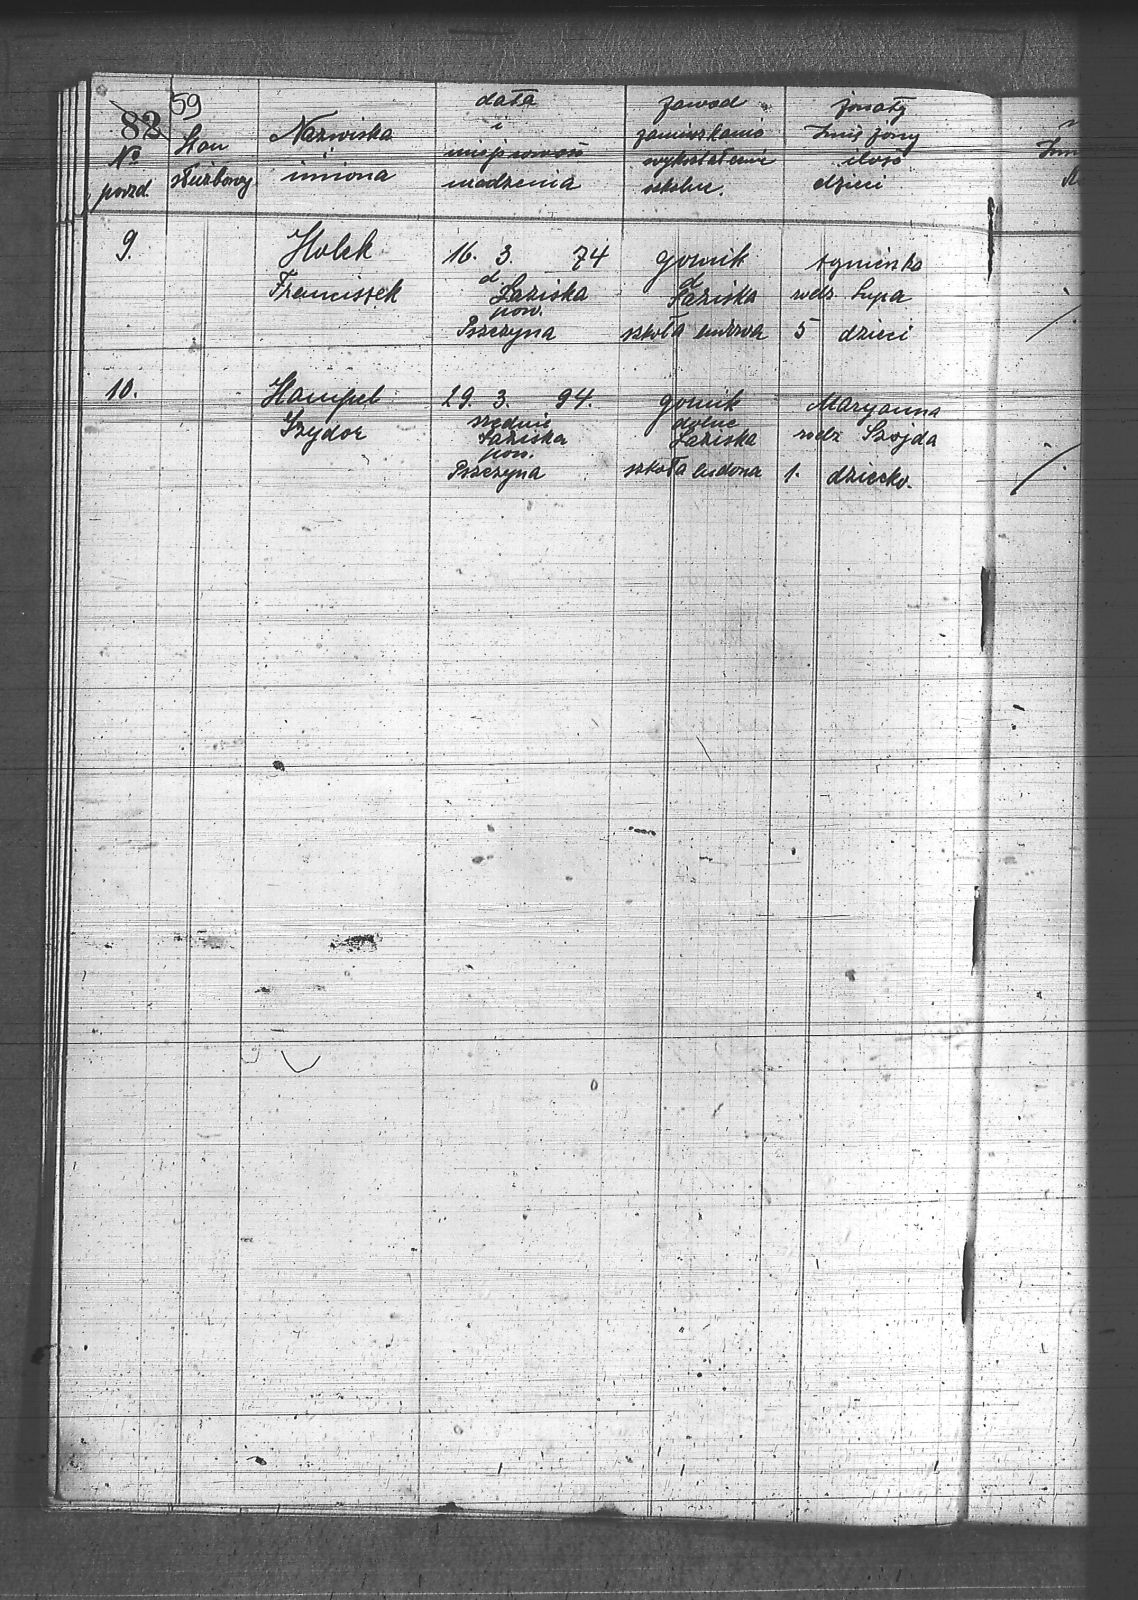 59
82
No
porzd.
Stan
służbowy
Nazwiska
i
imiona
data
i
miejscowość
urodzenia
zawod
zamieszkanie
wykształcenie
szkolne.
żonaty
Imię żony
ilość
dzieci
9.
Holek
Franciszek
16. 3. 74
d.
Łaziska
pow.
Pszczyna
gornik
d.
Łaziska
szkoła ludowa
Agnieszka
rodz Lupa
5 dzieci
10.
Hampel
Izydor
29. 3. 94.
średnie
Łaziska
pow.
Pszczyna
gornik
dolne
Łaziska
szkoła ludowa
Maryanna
rodz Szojda
1. dziecko.